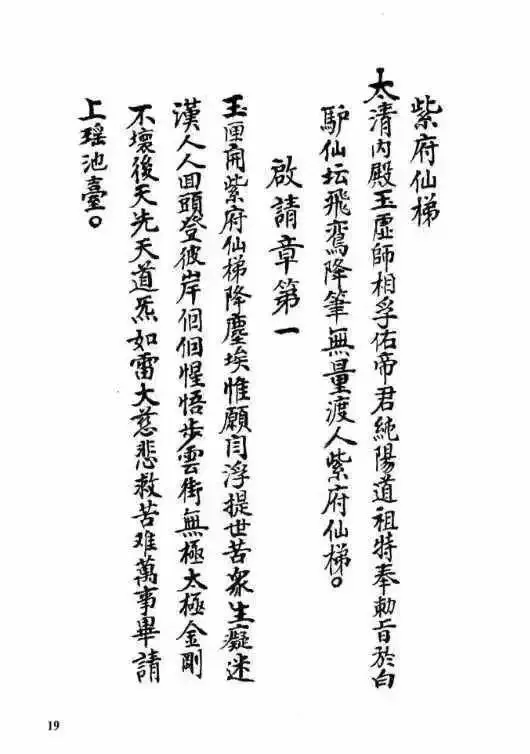 紫府仙梯
太清内殿玉虛師相孚佑帝君純陽道祖特奉勅旨於白
馿仙坛飛鸞降筆無量渡人紫府仙梯。
啟請章第一
玉匣開紫府仙梯降塵埃惟願閆浮提世苦衆生癡迷
漢人人回頭登彼岸個個惺悟步雲街無極太極金剛
不壞後天先天道炁如雷大慈悲救苦难萬事畢請
上瑶池臺。
19